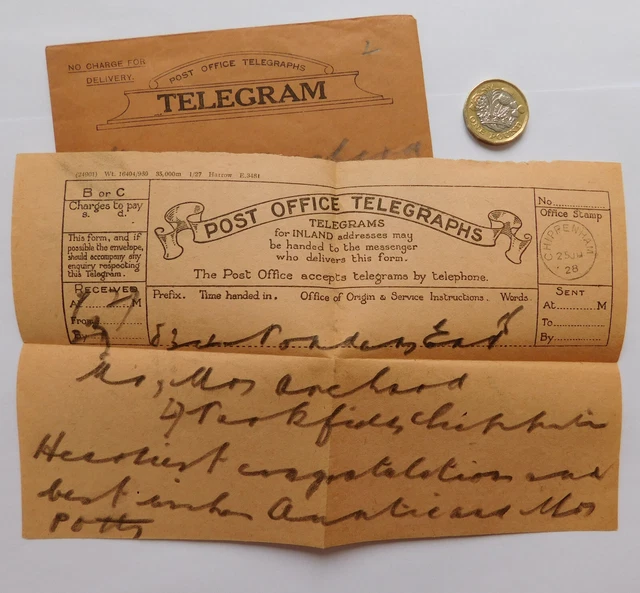 NO CHARGE FOR
DELIVERY.
POST OFFICE TELEGRAPHS
TELEGRAM
(24901) Wt. 16404/950 35,000m 1/27 Harrow E.3481
B or C
Charges to pay
s. d.
This form, and if
possible the envelope,
should accompany any
enquiry respecting
this Telegram.
RECEIVED
At M
From
By
POST OFFICE TELEGRAPHS
TELEGRAMS
for INLAND addresses may
be handed to the messenger
who delivers this form.
The Post Office accepts telegrams by telephone.
Prefix. Time handed in. Office of Origin & Service Instructions. Words.
No.
Office Stamp
CHIPPENHAM
25 JU
28
SENT
At M
To
By
Mr, Mrs
Heartiest congratulations and
best wishes Auntie and Mrs
Potts